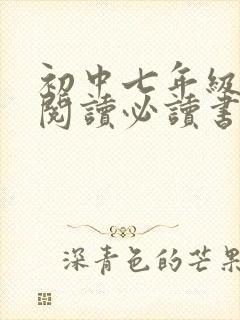 初中七年級
閱讀必讀書
深青色的芒果